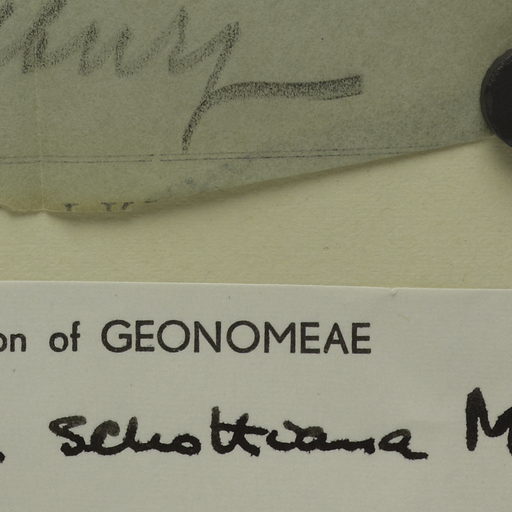 on of GEONOMEAE
. schottiana M